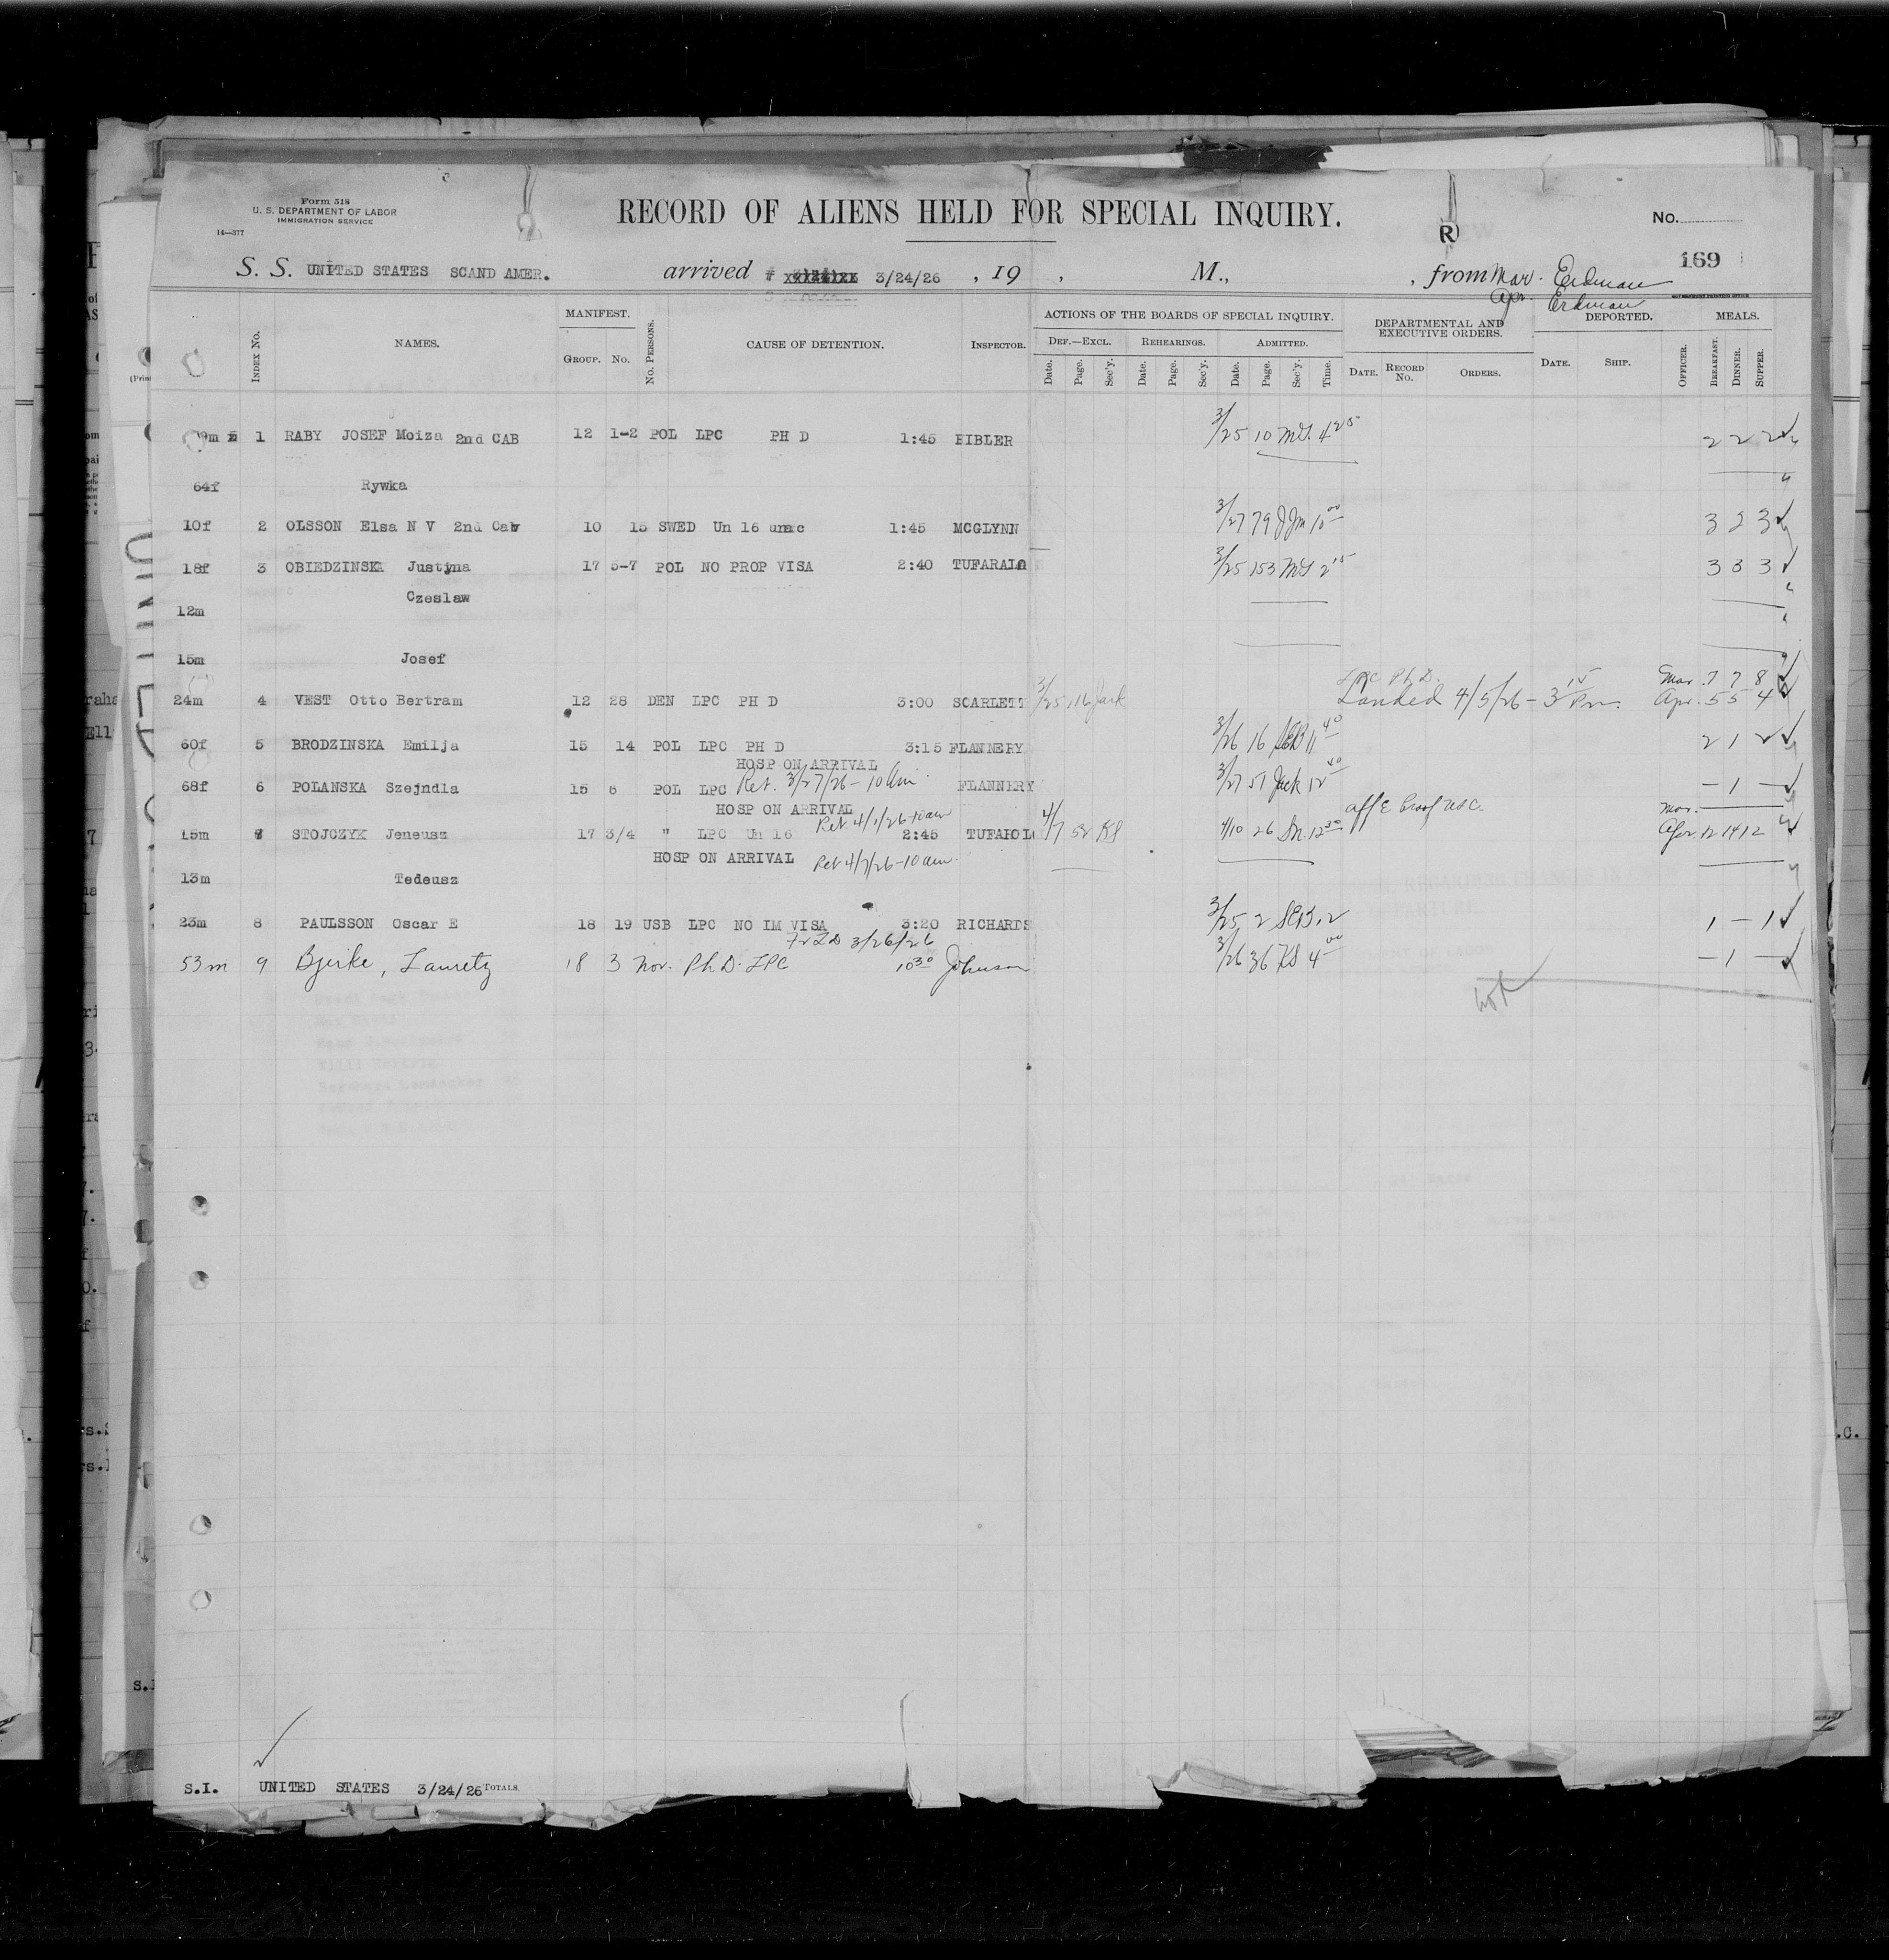 Form 518
U. S. DEPARTMENT OF LABOR
IMMIGRATION SERVICE
14—377
RECORD OF ALIENS HELD FOR SPECIAL INQUIRY.
No.
R
169
S. S. UNITED STATES SCAND AMER. arrived # 3/24/26 , 19 , M., , from Mar. Erdman
Apr. Erdman
INDEX NO. NAMES. MANIFEST. GROUP. NO. NO. PERSONS. CAUSE OF DETENTION. INSPECTOR.
ACTIONS OF THE BOARDS OF SPECIAL INQUIRY. DEPARTMENTAL AND EXECUTIVE ORDERS. DEPORTED. MEALS.
DEF.—EXCL. REHEARINGS. ADMITTED.
Date. Page. Sec'y. Date. Page. Sec'y. Date. Page. Sec'y. Time. DATE. RECORD NO. ORDERS. DATE. SHIP. OFFICER. BREAKFAST. DINNER. SUPPER.
1 RABY JOSEF Moiza 2nd CAB 12 1-2 POL LPC PH D 1:45 3/25 10 4 2 2 2
64f Rywka
10f 2 OLSSON Elsa N V 2nd Cab 10 15 SWED Un 16 unac 1:45 MCGLYNN 3/27 79 JJM 10 00 3 2 3
18f 3 OBIEDZINSKA Justyna 17 5-7 POL NO PROP VISA 2:40 TUFARALO 3/25 153 2 15 3 3 3
12m Czeslaw
15m Josef
LPC Ph. D. Mar. 7 7 8
24m 4 VEST Otto Bertram 12 28 DEN LPC PH D 3:00 SCARLETT 3/25 116 Jack Landed 4/5/26 - 3 15 Pm. Apr. 5 5 4
60f 5 BRODZINSKA Emilja 15 14 POL LPC PH D 3:15 FLANNERY 3/26 16 SEB 11 40 2 1 2
HOSP ON ARRIVAL
68f 6 POLANSKA Szejndla 15 6 POL LPC Ret. 3/27/26 - 10 am. FLANNERY 3/27 51 Jack 12 40 - 1 -
HOSP ON ARRIVAL Ret 4/1/26-10am Mar.
15m 7 STOJCZYK Jeneusz 17 3/4 " LPC Un 16 2:45 4/7 52 KS 4/10 26 12 30 Apr. 12 14 12
HOSP ON ARRIVAL Ret 4/7/26-10am.
13m Tedeusz
23m 8 PAULSSON Oscar E 18 19 USB LPC NO IM VISA 3:20 RICHARDS 3/25 2 SEB 12 1 - 1
3/26/26
53m 9 Bjerke, Lauretz 18 3 Nor. Ph D. LPC 10 30 Johnson 3/26 36 KS 4 00 - 1 -
S.I. UNITED STATES 3/24/26 TOTALS.